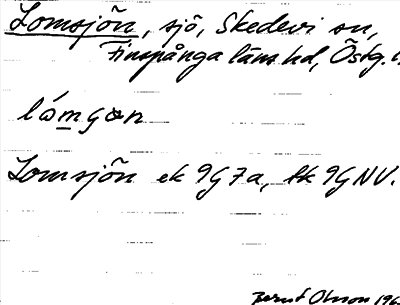 Lomsjön, sjö, Skedevi sn,
Finspånga läns hd, Östg.
lómgøn
Lomsjön ek 9G7a, tk 9GNV.
Bernt Olsson 196